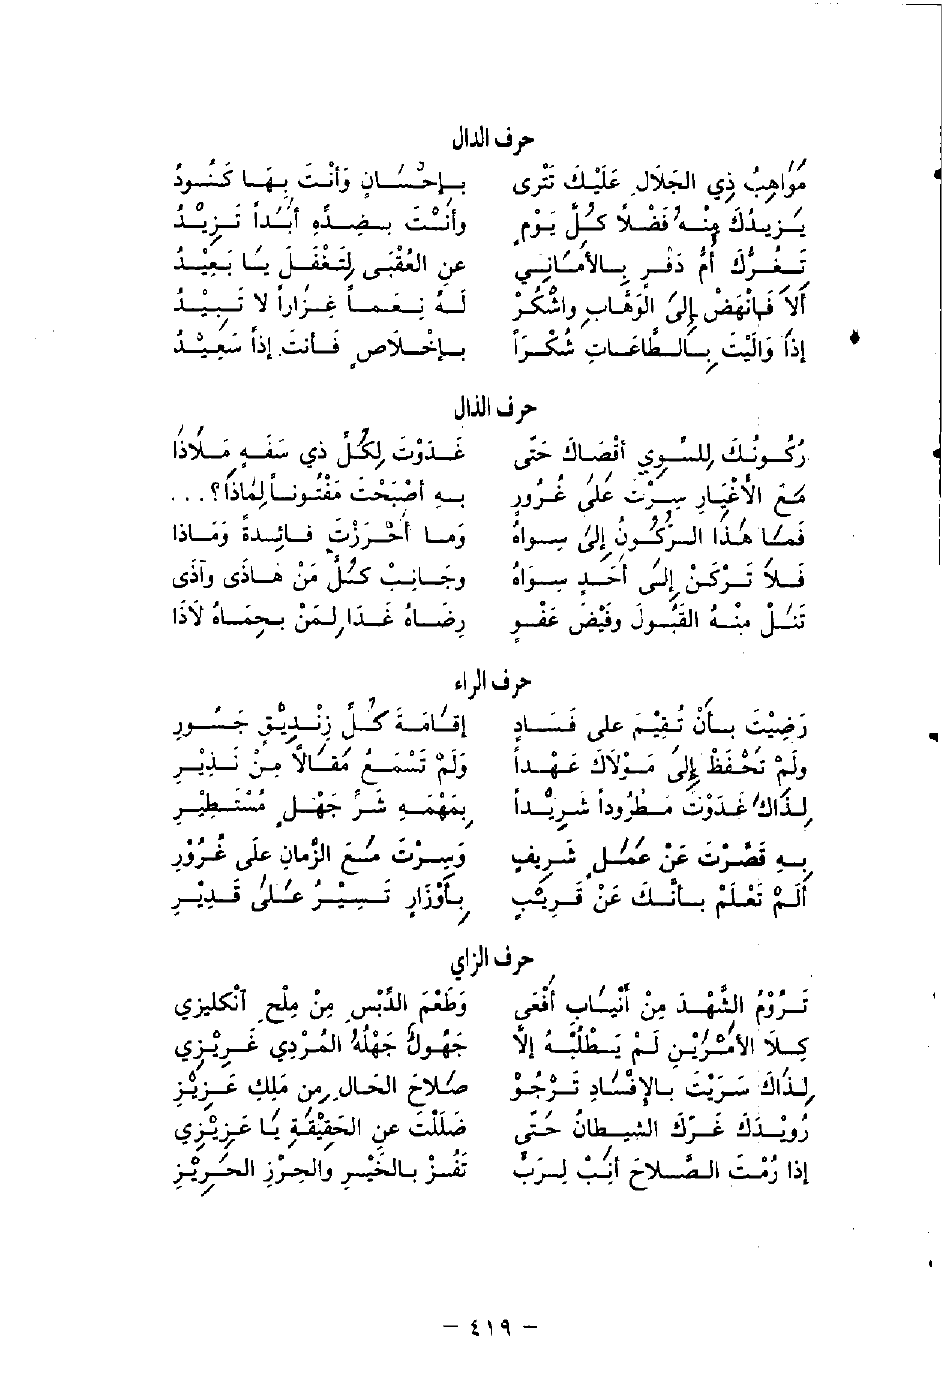 حرف الدال
مَوَاهِبُ ذِي الجَلَالِ عَلَيْكَ تَتْرَى بِإِحْسَانٍ وَأَنْتَ بِهَا كَنُودُ
يَزِيدُكَ مِنْهُ فَضْلاً كُلَّ يَوْمٍ وَأَنْتَ بِضِدِّهِ أَبَداً تَزِيْدُ
تَغُرُّكَ أُمُّ دَفْرٍ بِالأَمَانِي عَنِ العُقْبَى لِتَغْفَلَ يَا بَعِيْدُ
أَلَا فَانْهَضْ إِلَى الوَهَّابِ وَاشْكُرْ لَهُ نِعَماً غِزَاراً لَا تَبِيْدُ
إِذَا وَالَيْتَ بِالطَّاعَاتِ شُكْرَاً بِإِخْلَاصٍ فَأَنْتَ إِذَاً سَعِيْدُ
حرف الذال
رُكُونُكَ لِلسِّوِي أَقْصَاكَ حَتَّى غَدَوْتَ لِكُلِّ ذِي سَفَهٍ مَلَاذَا
مَعَ الأَغْيَارِ سِرْتَ عَلَى غُرُورٍ بِهِ أَصْبَحْتَ مَفْتُوناً لِمَاذَا؟ . . .
فَمَا هَذَا الرُّكُونُ إِلَى سِوَاهُ وَمَا أَحْرَزْتَ فَائِدَةً وَمَاذَا
فَلَا تَرْكَنْ إِلَى أَحَدٍ سِوَاهُ وَجَانِبْ كُلَّ مَنْ هَاذَى وَآذَى
تَنَلْ مِنْهُ القَبُولَ وَفَيْضَ عَفْوٍ رِضَاهُ غَدَا لِمَنْ بِحِمَاهُ لَاذَا
حرف الراء
رَضِيْتَ بِأَنْ تُقِيْمَ عَلَى فَسَادٍ إِقَامَةَ كُلِّ زِنْدِيْقٍ جَسُورِ
وَلَمْ تَحْفَظْ إِلَى مَوْلَاكَ عَهْداً وَلَمْ تَسْمَعْ مَقَالاً مِنْ نَذِيْرِ
لِذَاكَ غَدَوْتَ مَطْرُوداً شَرِيْداً بِمَهْمَهِ شَرِّ جَهْلٍ مُسْتَطِيْرِ
بِهِ قَصَّرْتَ عَنْ عَمَلٍ شَرِيفٍ وَسِرْتَ مَعَ الزَّمَانِ عَلَى غُرُوْرِ
أَلَمْ تَعْلَمْ بِأَنَّكَ عَنْ قَرِيْبٍ بِأَوْزَارٍ تَسِيْرُ عَلَى قَدِيْرِ
حرف الزاي
تَرُوْمُ الشَّهْدَ مِنْ أَنْيَابِ أَفْعَى وَطَعْمَ الدِّبْسِ مِنْ مِلْحٍ آنْكليزي
كِلَا الأَمْرَيْنِ لَمْ يَطْلُبْهُ إِلَّا جَهُولٌ جَهْلُهُ المُرْدِي غَرِيْزِي
لِذَاكَ سَرَيْتَ بِالإِفْسَادِ تَرْجُوْ صَلَاحَ الحَالِ مِن مَلِكٍ عَزِيْزِ
رُوَيْدَكَ غَرَّكَ الشَّيطَانُ حَتَّى ضَلَلْتَ عَنِ الحَقِيْقَةِ يَا عَزِيْزِي
إِذَا رُمْتَ الصَّلَاحَ أَنِبْ لِرَبٍّ تَفُزْ بِالخَيْرِ وَالحِرْزِ الحَرِيْزِ
– ٤١٩ –